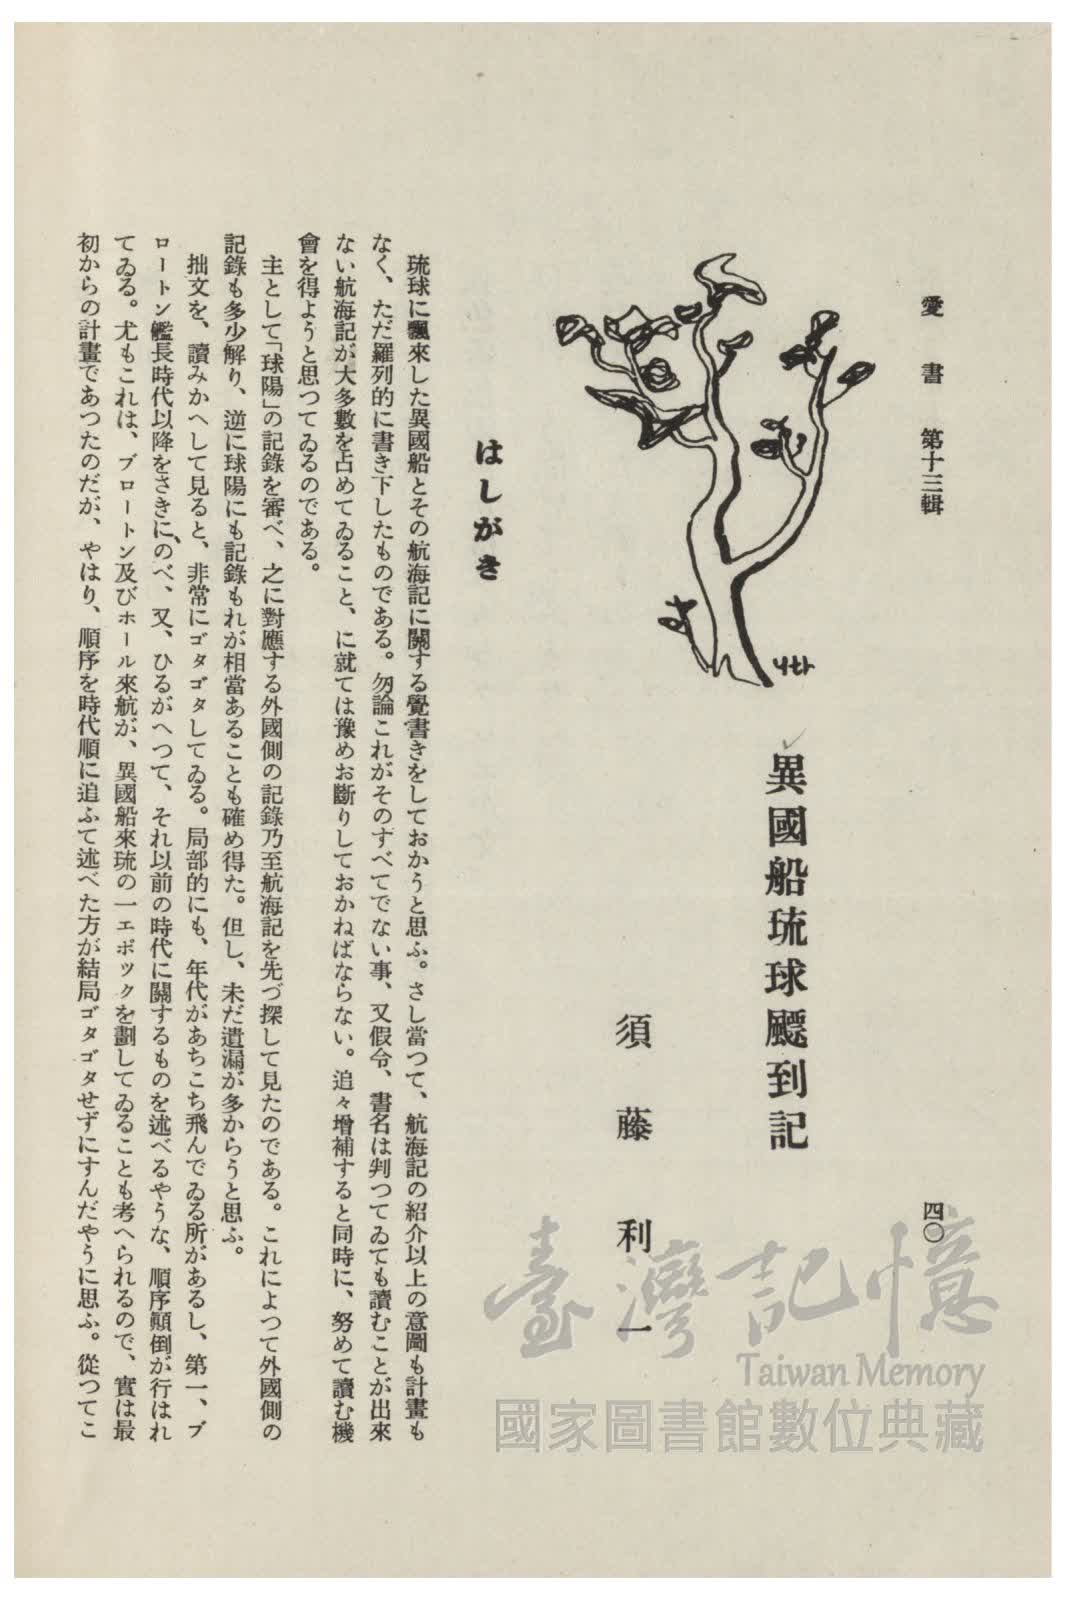 愛書 第十三輯
四〇
異國船琉球飃到記
須藤利一
はしがき
琉球に飄來した異國船とその航海記に關する覺書きをしておかうと思ふ。さし當つて、航海記の紹介以上の意圖も計畫も
なく、ただ羅列的に書き下したものである。勿論これがそのすべてでない事、又假令、書名は判つてゐても讀むことが出來
ない航海記が大多數を占めてゐること、に就ては豫めお斷りしておかねばならない。追々增補すると同時に、努めて讀む機
會を得ようと思つてゐるのである。
主として「球陽」の記錄を審べ、之に對應する外國側の記錄乃至航海記を先づ探して見たのである。これによつて外國側の
記錄も多少解り、逆に球陽にも記錄もれが相當あることも確め得た。但し、未だ遺漏が多からうと思ふ。
拙文を、讀みかへして見ると、非常にゴタゴタしてゐる。局部的にも、年代があちこち飛んでゐる所があるし、第一、ブ
ロートン艦長時代以降をさきに、のべ、又、ひるがへつて、それ以前の時代に關するものを述べるやうな、順序顚倒が行はれ
てゐる。尤もこれは、ブロートン及びホール來航が、異國船來琉の一エポツクを劃してゐることも考へられるので、實は最
初からの計畫であつたのだが、やはり、順序を時代順に追ふて述べた方が結局ゴタゴタせずにすんだやうに思ふ。從つてこ
臺灣記憶
Taiwan Memory
國家圖書館數位典藏